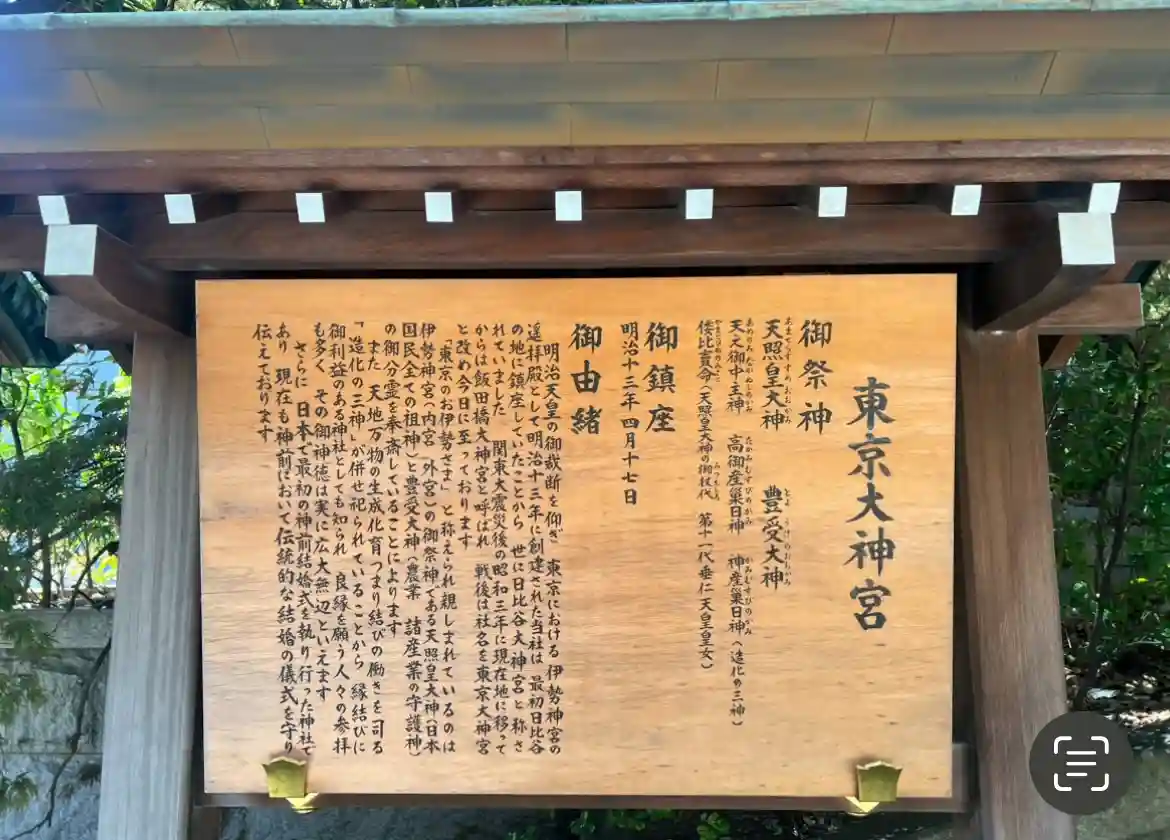 東京大神宮
御祭神
天照皇大神 豊受大神
天之御中主神 高御産巣日神 神産巣日神(造化の三神)
倭比賣命(天照皇大神の御杖代 第十一代垂仁天皇皇女)
御鎮座
明治十三年四月十七日
御由緒
明治天皇の御裁断を仰ぎ 東京における 伊勢神宮の
遥拝殿として明治十三年に創建された当社は 最初日比谷
の地に鎮座していたことから 世に日比谷大神宮と称さ
れていました 関東大震災後の昭和三年に現在地に移って
からは飯田橋大神宮と呼ばれ 戦後は社名を東京大神宮
と改め今日に至っております
「東京のお伊勢さま」と称えられ親しまれているのは
伊勢神宮(内宮 外宮)の御祭神である天照皇大神(日本
国民全ての祖神)と豊受大神(農業 諸産業の守護神)
の御分霊を奉斎していることによります
また 天地万物の生成化育つまり結びの働きを司る
「造化の三神」が併せ祀られていることから 縁結びに
御利益のある神社としても知られ 良縁を願う人々の参拝
も多く その御神徳は実に広大無辺といえます
さらに 日本で最初の神前結婚式を執り行った神社で
あり 現在も神前において伝統的な結婚の儀式を守り
伝えております